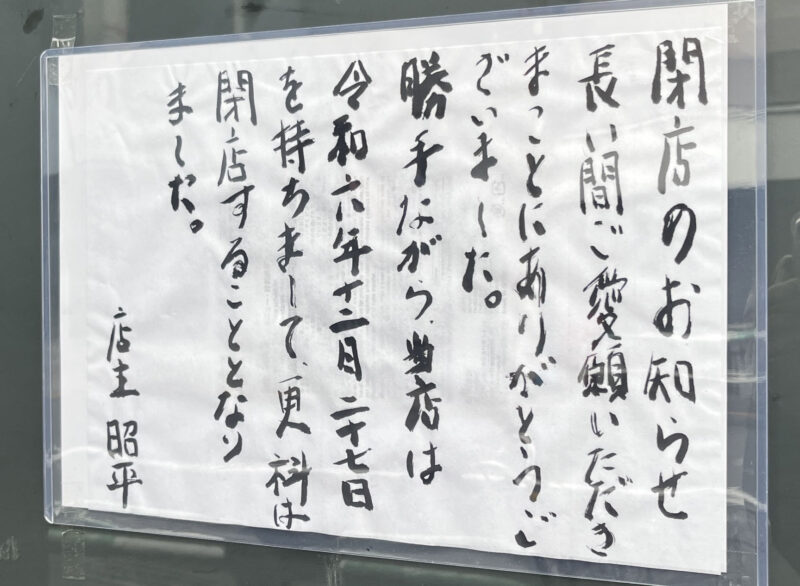 閉店のお知らせ
長い間ご愛願いただき
まことにありがとうご
ざいました。
勝手ながら、当店は
令和六年十二月二十七日
を持ちまして、更科は
閉店することとなり
ました。
店主 昭平